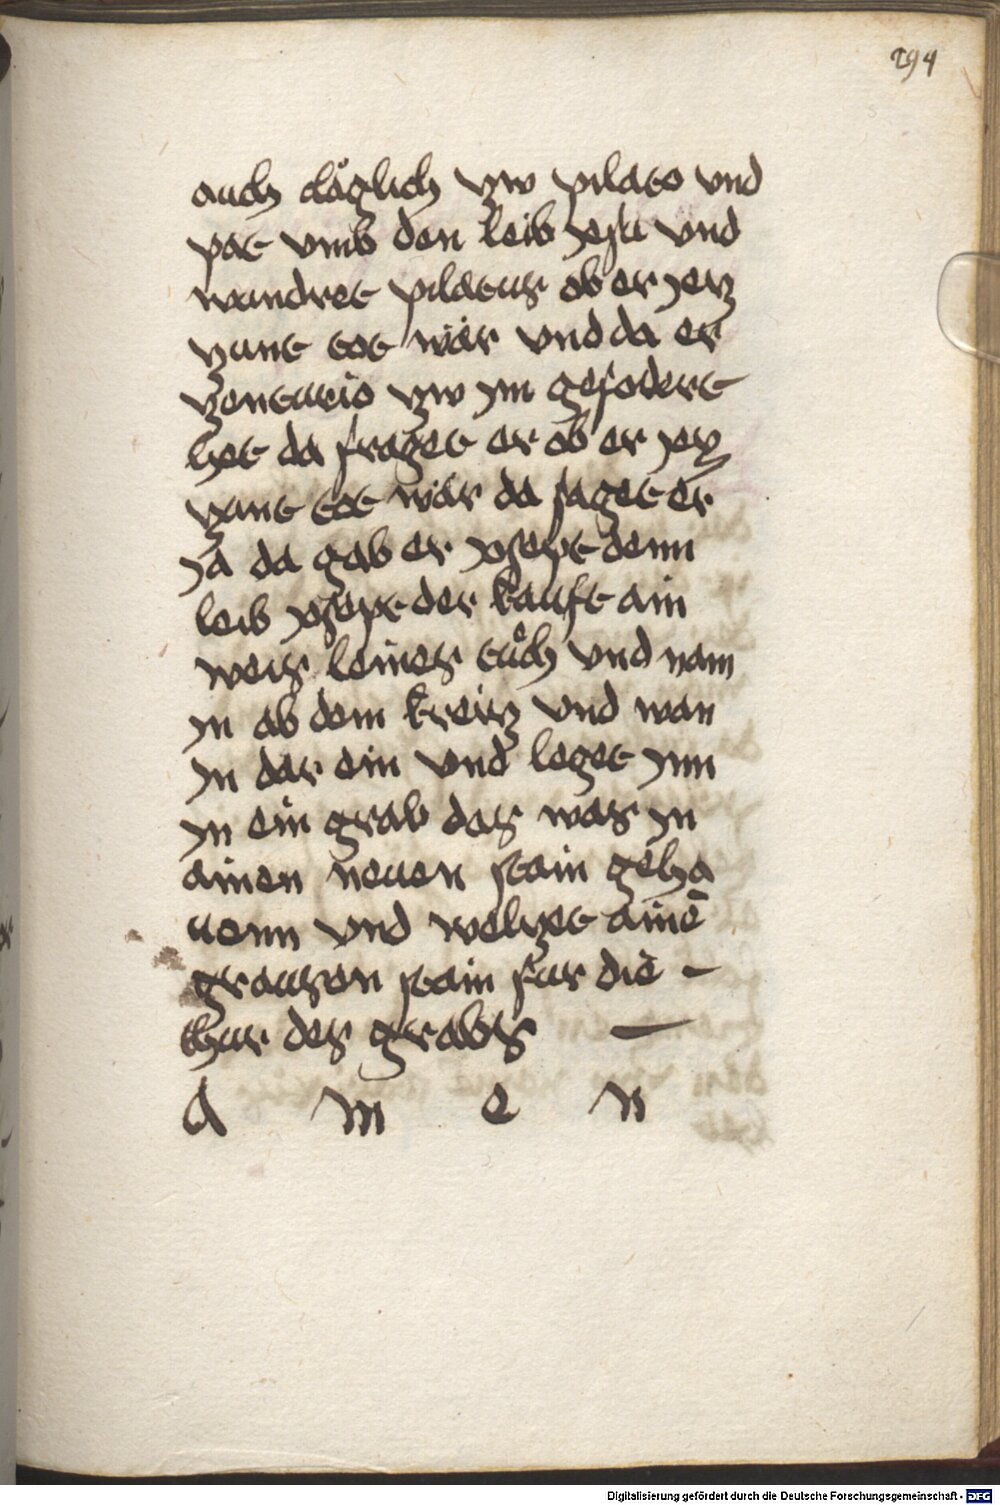 294
auch däglich zw pilato vnd
pat vmb den leib jesu vnd
wundret pilatus ob er jetz
zunt tot wär vnd da er
zenturio zw ym gefodert
het da fraget er ob er jetz
zunt tot wär da saget er
ja da gab er josept denn
leib josept der kauft ain
weis leines tuͦch vnd nam
yn ab dem kreiz vnd wan
yn dar ein vnd leget ynn
yn ein grab das was yn
ainen neuen stain geha
uenn vnd welzet ainē
grausen stain fur die –
thur des grabs –
A m e n
Digitalisierung gefördert durch die Deutsche Forschungsgemeinschaft - DFG